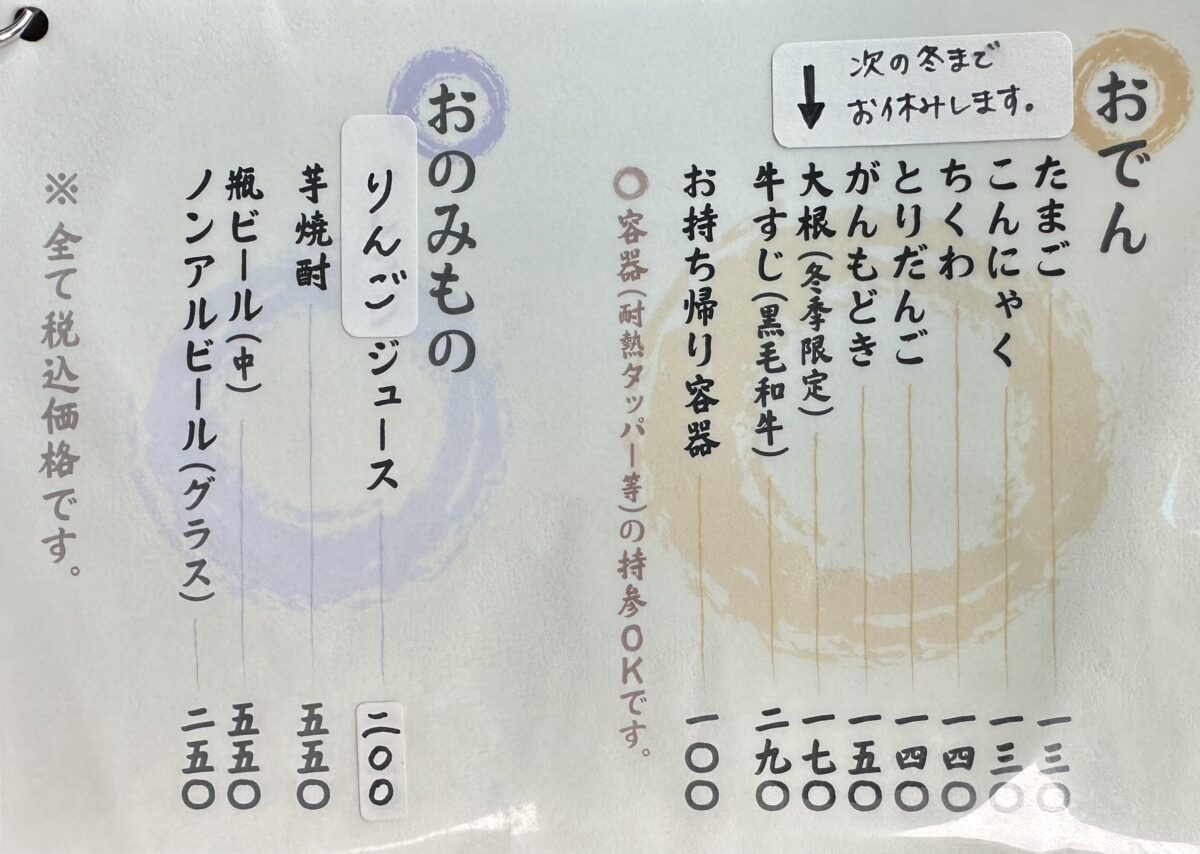 おでん
次の冬まで
お休みします。
たまご 一三〇
こんにゃく 一三〇
ちくわ 一四〇
とりだんご 一四〇
がんもどき 一五〇
大根(冬季限定) 一七〇
牛すじ(黒毛和牛) 二九〇
お持ち帰り容器 一〇〇
〇容器(耐熱タッパー等)の持参OKです。
おのみもの
りんごジュース 二〇〇
芋焼酎 五五〇
瓶ビール(中) 五五〇
ノンアルビール(グラス) 二五〇
※全て税込価格です。